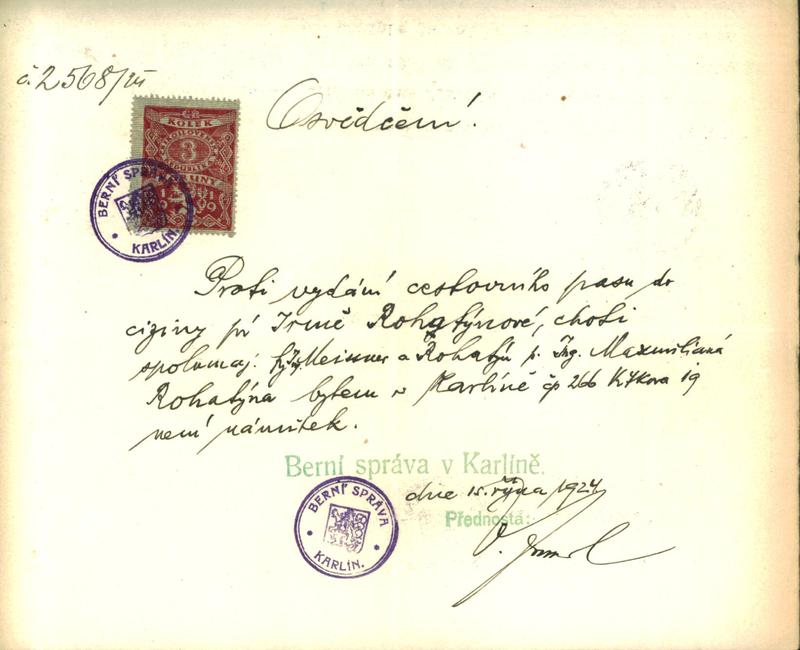 č. 2568/III
Osvědčení.
KOLEK
3
KORUNY
BERNÍ SPRÁVA
KARLÍN.
Proti vydání cestovního pasu do
ciziny pí Irmě Rohatýnové, choti
spolumaj. fy Meisner a Rohatýn p. Ing. Maxmiliana
Rohatýna bytem v Karlíně čp 266 Vítkova 19
není námitek.
Berní správa v Karlíně.
dne 15. října 1924
Přednosta:
BERNÍ SPRÁVA
KARLÍN.